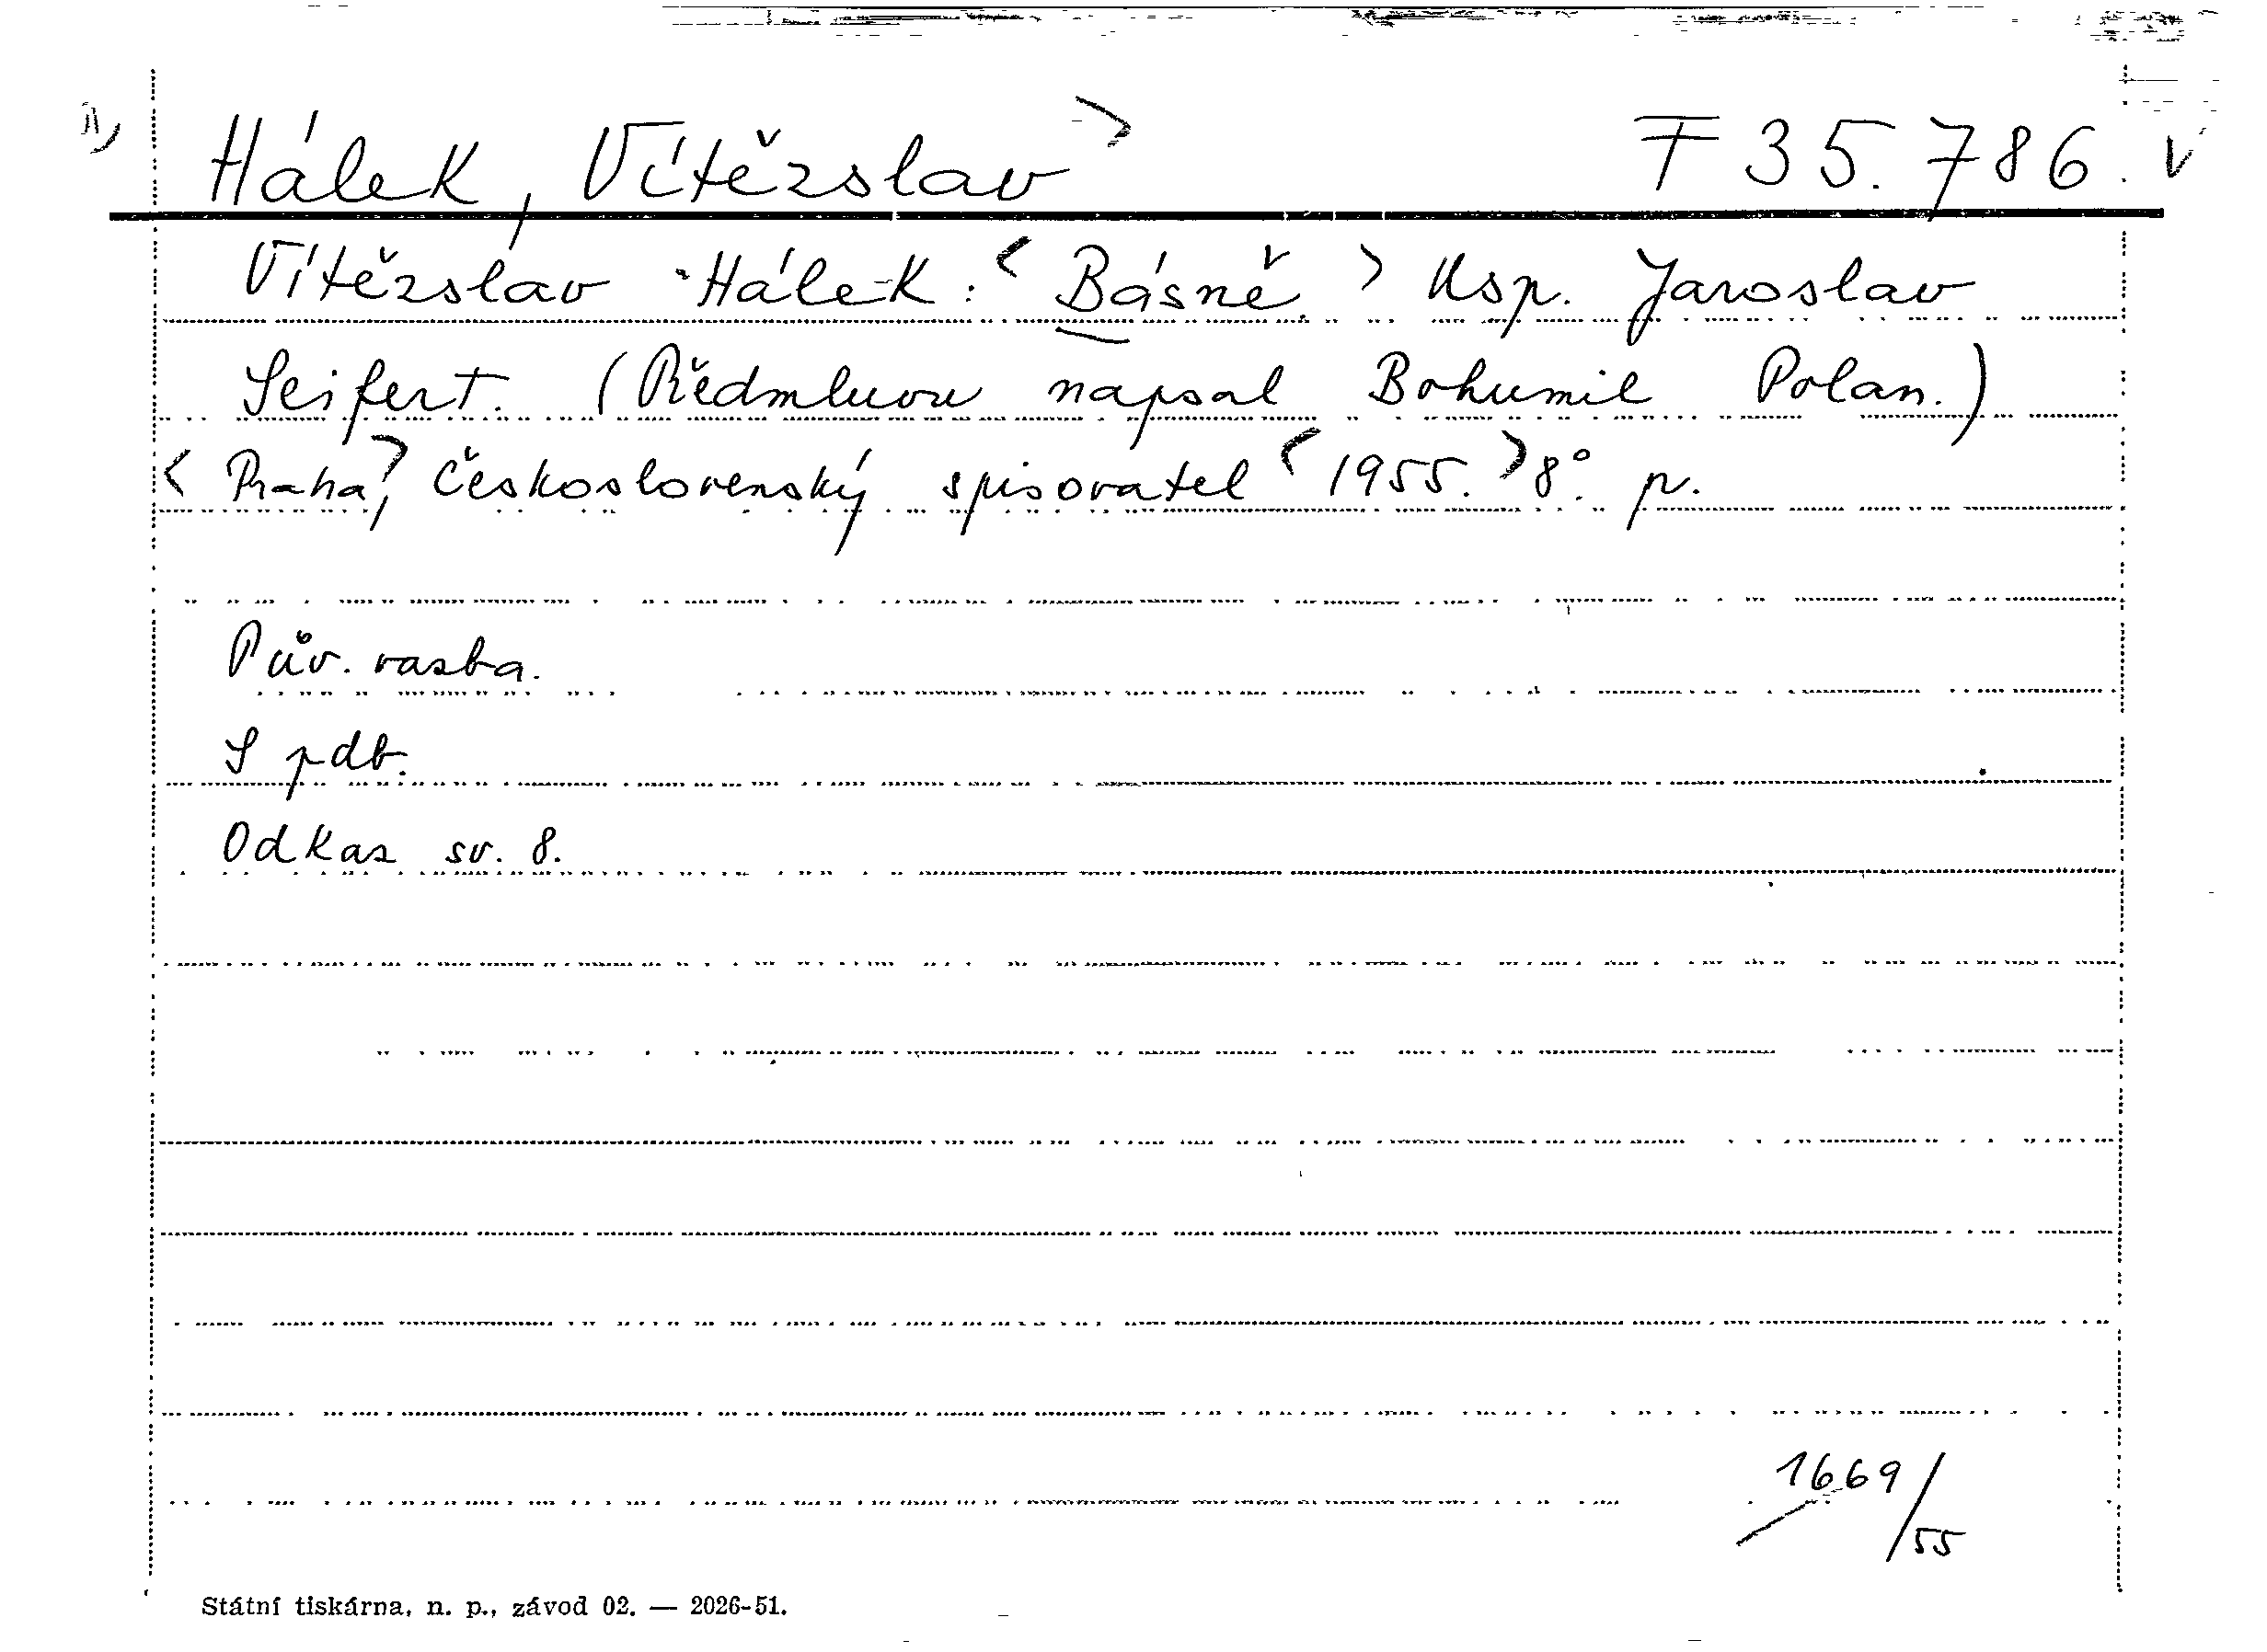 Hálek, Vítězslav > F 35.786. v
Vítězslav Hálek: < Básně. > Usp. Jaroslav
Seifert. (Předmluvou napsal Bohumil Polan.)
< Praha, > Československý spisovatel < 1955. > 8°. p.
Pův. vazba.
S pdb.
Odkaz sv. 8.
1669/55
Státní tiskárna, n. p., závod 02. — 2026-51.